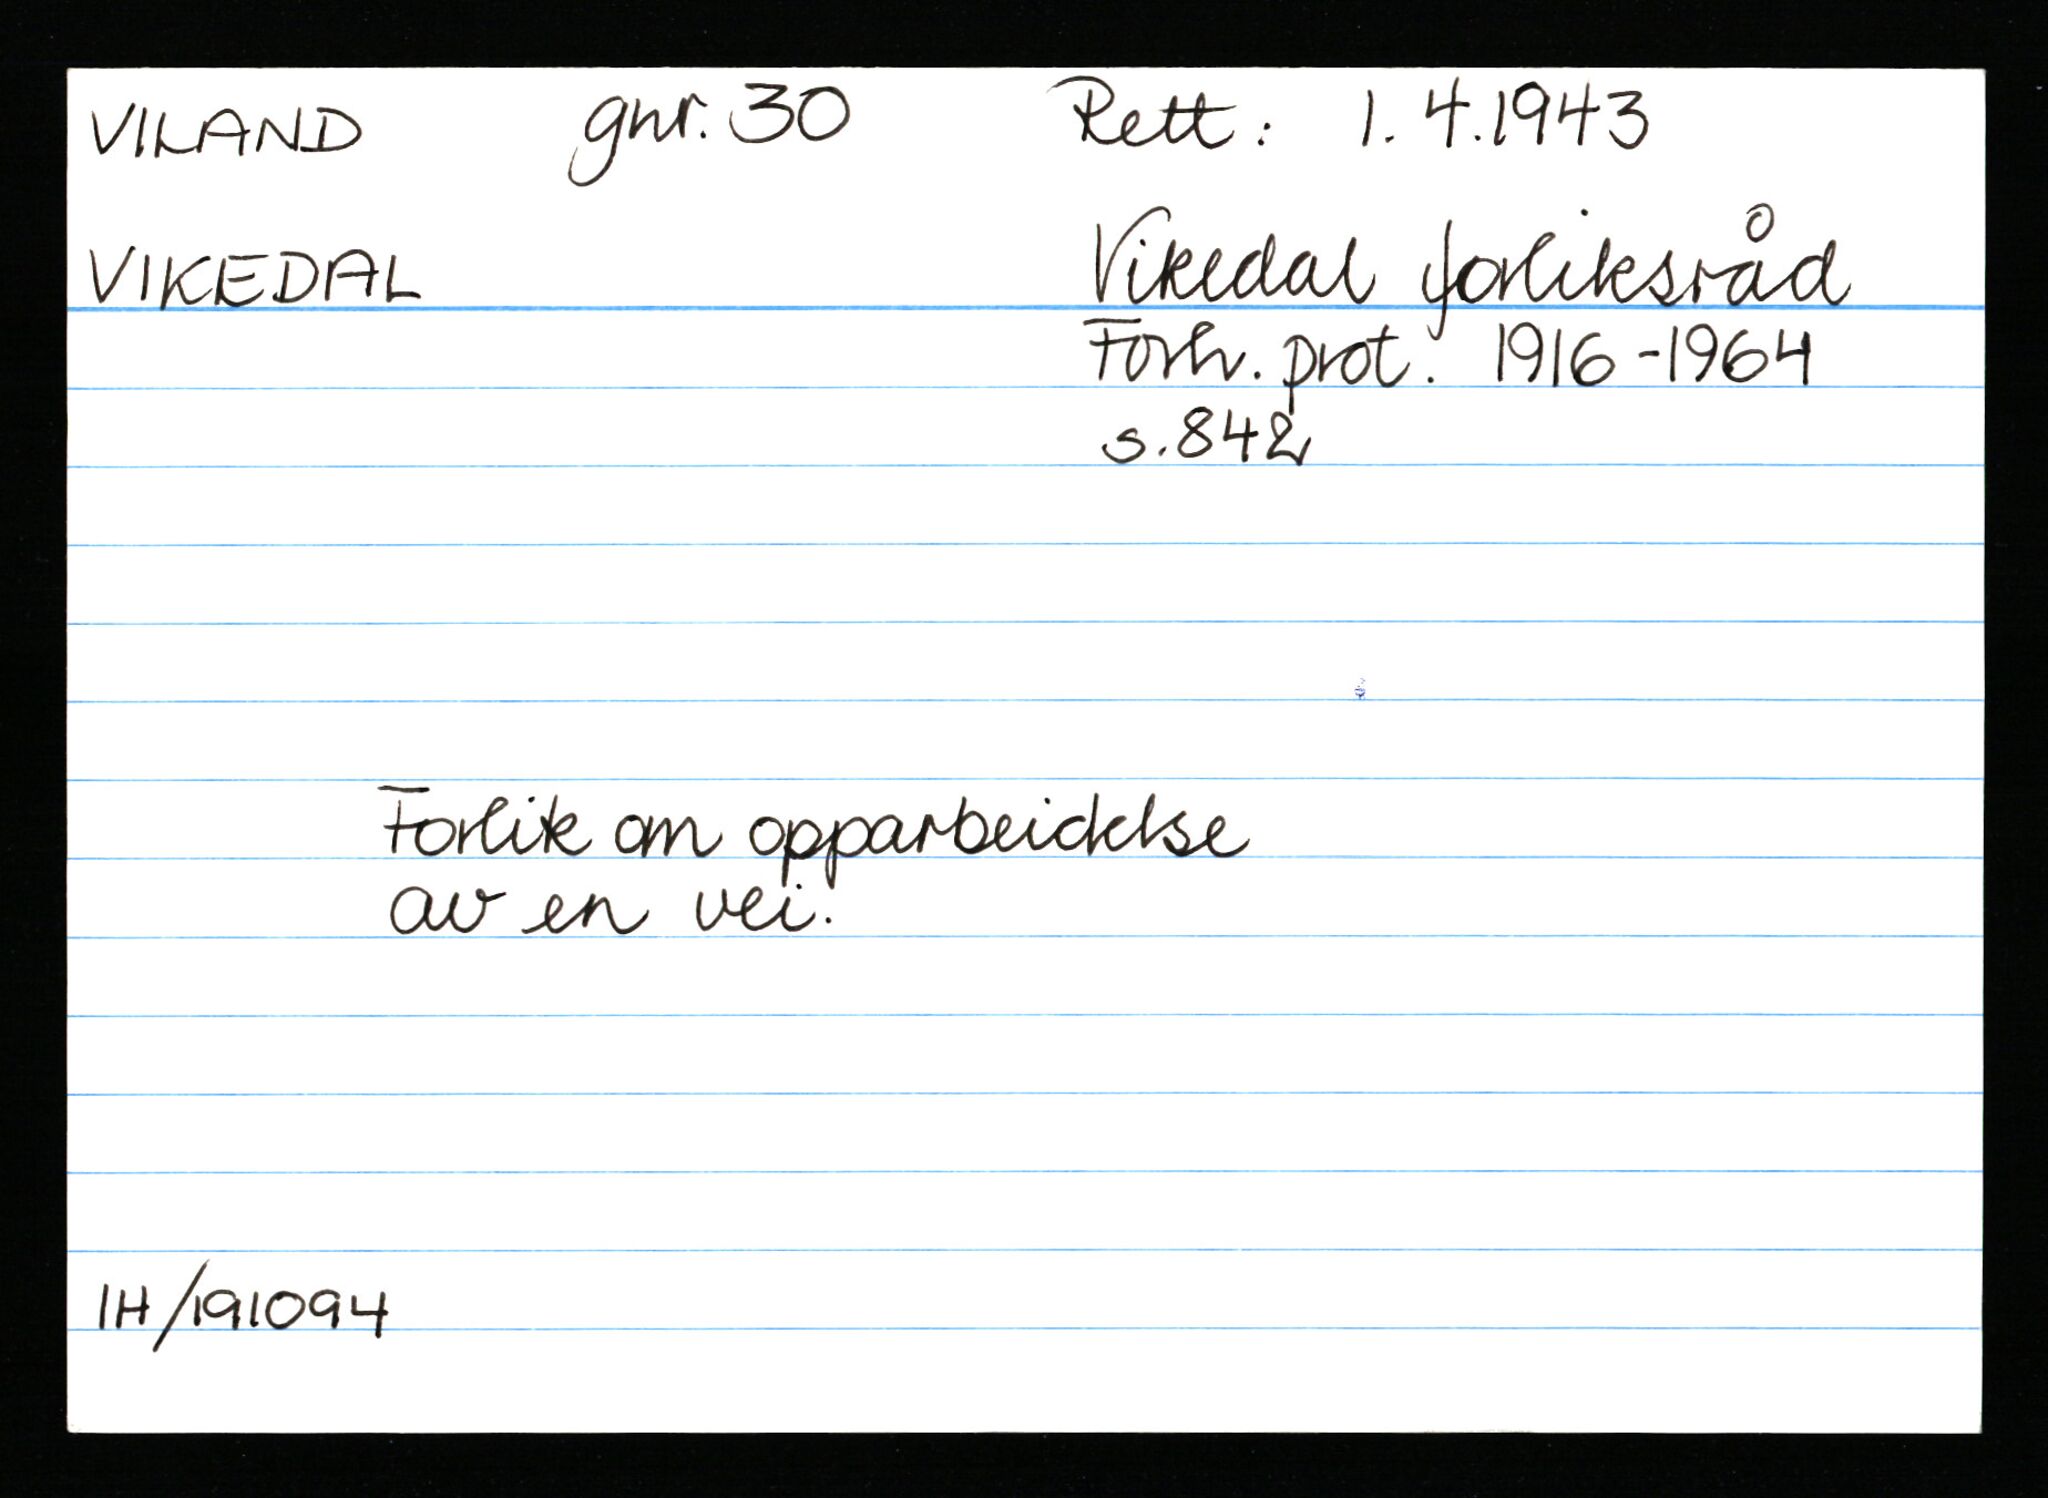 VILAND gnr. 30 Rett: 1. 4. 1943
VIKEDAL Vikedal forliksråd
Forh. prot. 1916-1964
s. 842
Forlik om opparbeidelse
av en vei.
IH/191094